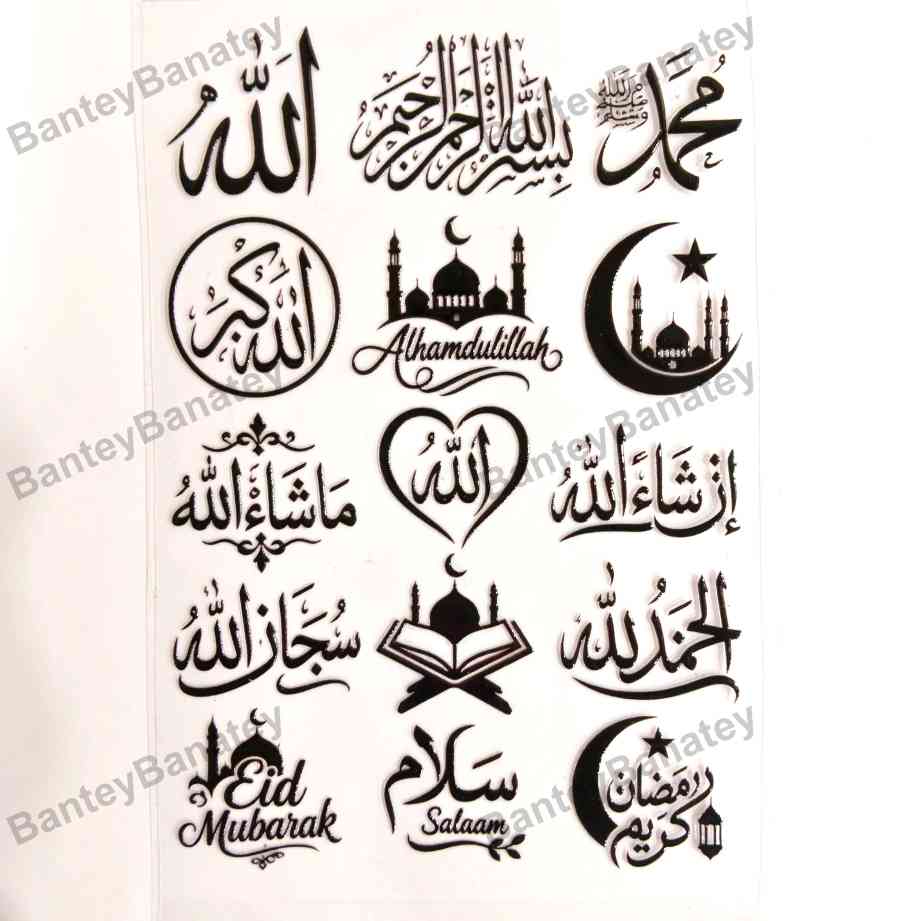 BanteyBanatey
BanteyBanatey
الله
بسم الله الرحمن الرحيم
محمد
الله أكبر
Alhamdulillah
BanteyBanatey
BanteyBanatey
ما شاء الله
الله
إن شاء الله
سبحان الله
الحمد لله
BanteyBanatey
BanteyBanatey
Eid
Mubarak
سلام
Salaam
رمضان
كريم